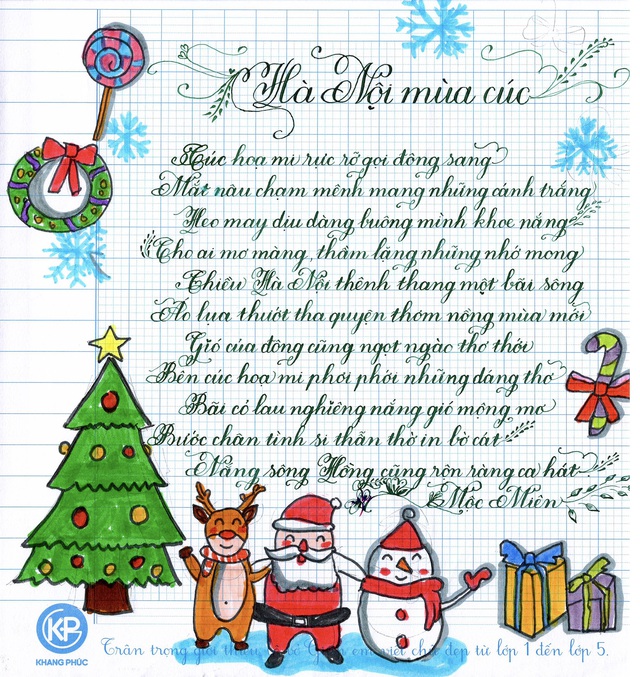 Hà Nội mùa cúc
Cúc hoạ mi rực rỡ gọi đông sang
Mắt nâu chạm mênh mang những cánh trắng
Heo may dịu dàng buông mình khoe nắng
Cho ai mơ màng, thầm lặng những nhớ mong
Chiều Hà Nội thênh thang một bãi sông
Áo lụa thướt tha quyện thơm nồng mùa mới
Gió của đông cũng ngọt ngào thơ thới
Bên cúc hoạ mi phơi phới những dáng thơ
Bãi cỏ lau nghiêng nắng gió mộng mơ
Bước chân tình si thẫn thờ in bờ cát
Nắng sông Hồng cũng rộn ràng ca hát
Mộc Miên
KP
KHANG PHÚC
Trân trọng giới thiệu em viết chữ đẹp từ lớp 1 đến lớp 5.